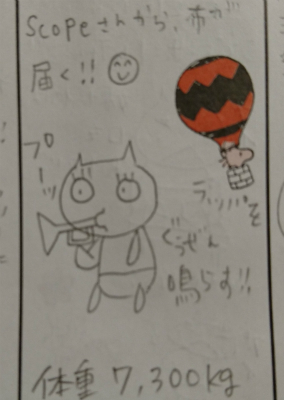 Scopeさんから、布が
届く!!
プーッ
ラッパを
ぐうぜん
鳴らす!!
体重 7,300kg